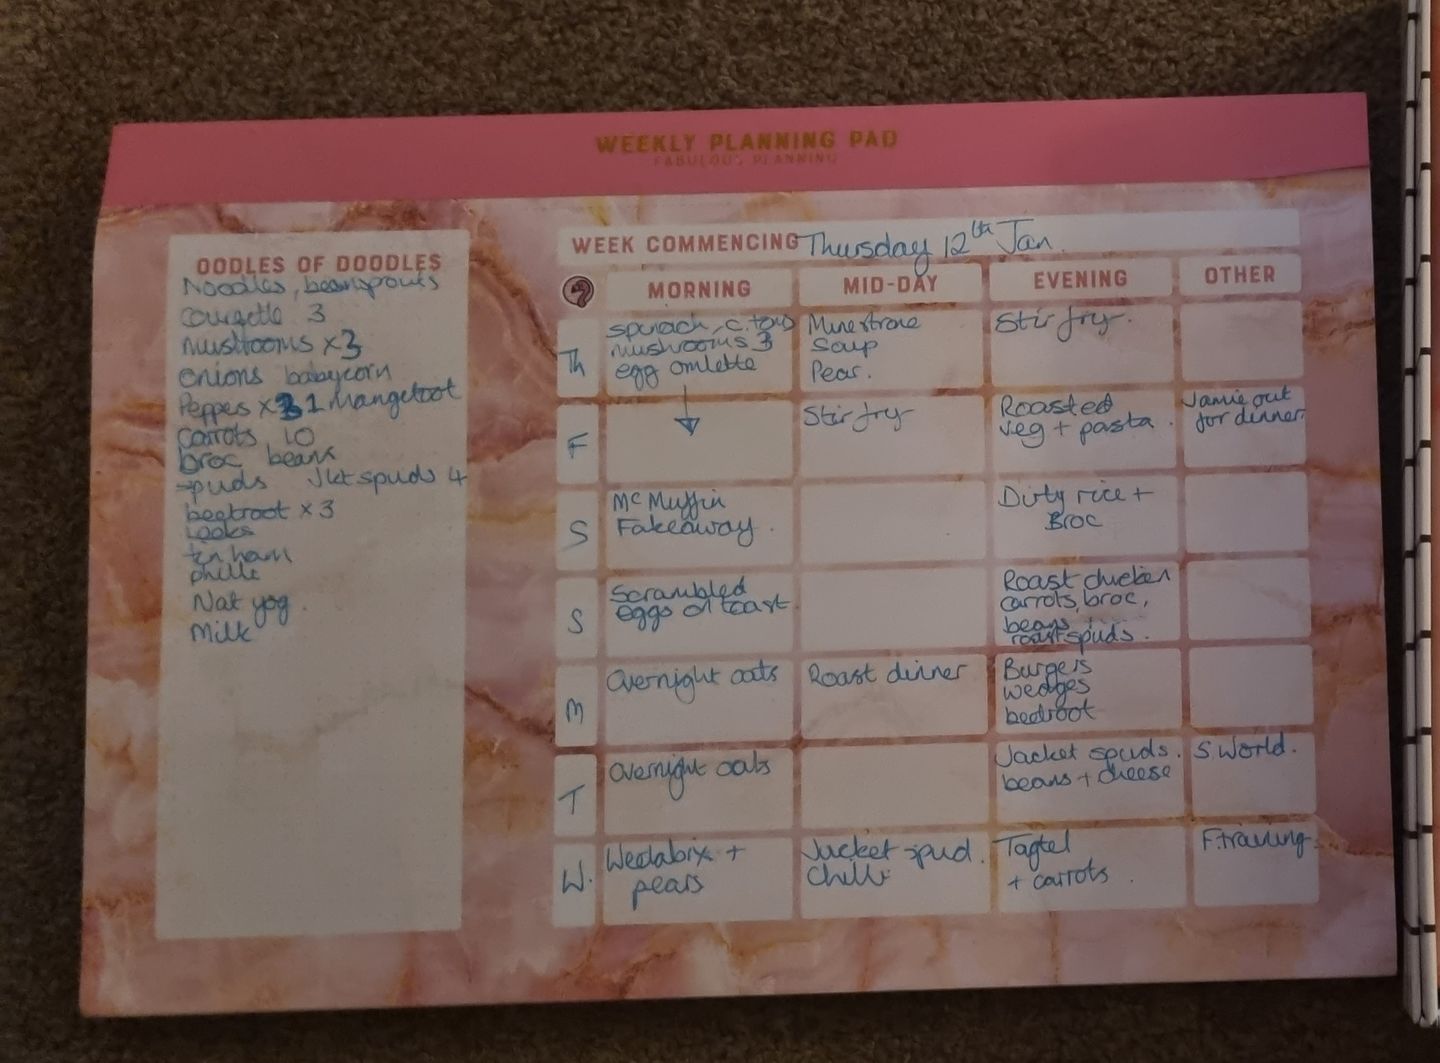 WEEKLY PLANNING PAD
FABULOUS PLANNING
OODLES OF DOODLES
Noodles, beansprouts
Courgette 3
Mushrooms x3
Onions babycorn
Peppes x 1 Mangetoot
Carrots 10
broc beans
spuds Jkt spuds 4
beetroot x 3
Leeks
tin ham
philli
Nat yog.
Milk
WEEK COMMENCING Thursday 12th Jan.
MORNING
MID-DAY
EVENING
OTHER
Th
spinach, c.toms
mushrooms 3
egg omlette
Minestrone
Soup
Pear.
Stir fry.
F
Stir fry
Roasted
veg + pasta.
Jamie out
for dinner.
S
Mc Muffin
Fakeaway.
Dirty rice +
Broc
S
Scrambled
eggs on toast.
Roast chicken
carrots, broc,
beans
roast spuds.
M
Overnight oats
Roast dinner
Burgers
wedges
beetroot
T
Overnight oats
Jacket spuds.
beans + cheese
S World.
W.
Weetabix +
pears
Jacket spud.
Chilli
Tagtel
+ carrots.
F.training.